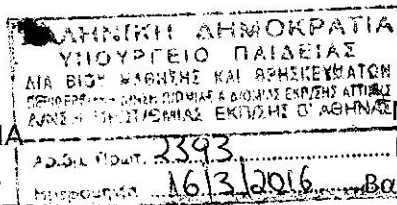 ΕΛΛΗΝΙΚΗ ΔΗΜΟΚΡΑΤΙΑ
ΥΠΟΥΡΓΕΙΟ ΠΑΙΔΕΙΑΣ
ΔΙΑ ΒΙΟΥ ΜΑΘΗΣΗΣ ΚΑΙ ΘΡΗΣΚΕΥΜΑΤΩΝ
Π/ΘΜΙΑΣ & Δ/ΘΜΙΑΣ ΕΚΠ/ΣΗΣ ΑΤΤΙΚΗΣ
ΕΚΠ/ΣΗΣ Δ' ΑΘΗΝΑΣ
Αριθ. Πρωτ. 2393
Ημερομηνία 16/3/2016 Βα